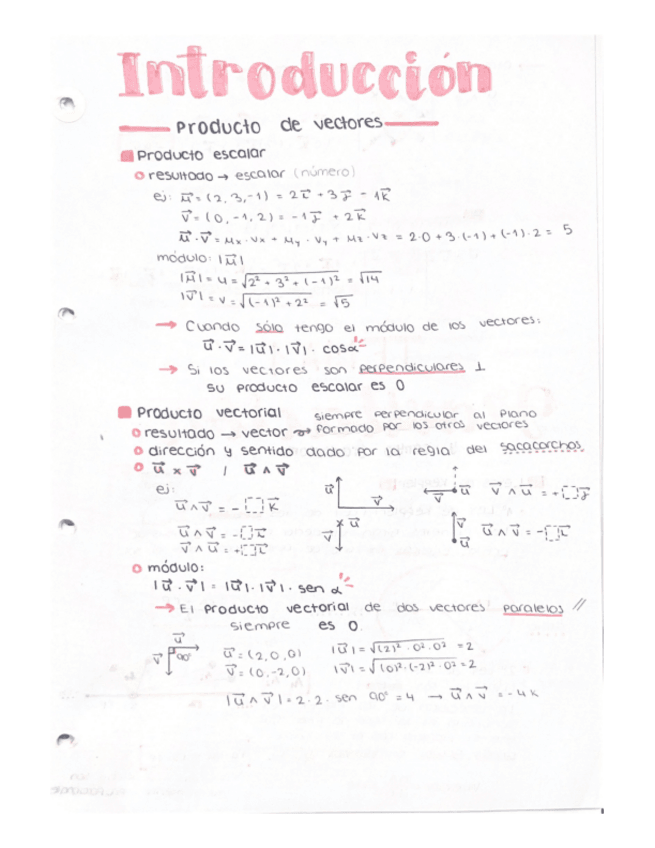 Introducción
Producto de vectores
Producto escalar
resultado → escalar (número)
ej: u⃗ = (2, 3, -1) = 2i⃗ + 3j⃗ - 1k⃗
v⃗ = (0, -1, 2) = -1j⃗ + 2k⃗
u⃗ · v⃗ = ux · vx + uy · vy + uz · vz = 2·0 + 3·(-1) + (-1)·2 = 5
módulo: |u⃗|
|u⃗| = u = √2² + 3² + (-1)² = √14
|v⃗| = v = √(-1)² + 2² = √5
→ Cuando sólo tengo el módulo de los vectores:
u⃗ · v⃗ = |u⃗| · |v⃗| · cosα
→ Si los vectores son perpendiculares ⊥
su producto escalar es 0
Producto vectorial siempre perpendicular al plano
resultado → vector → formado por los otros vectores
dirección y sentido dado por la regla del sacacorchos
u⃗ × v⃗ / u⃗ ∧ v⃗
ej:
u⃗ v⃗ v⃗ u⃗ v⃗ ∧ u⃗ = + [ ] j⃗
u⃗ ∧ v⃗ = - [ ] k⃗
u⃗ ∧ v⃗ = - [ ] i⃗ v⃗ × u⃗ v⃗ u⃗ u⃗ ∧ v⃗ = - [ ] i⃗
v⃗ ∧ u⃗ = + [ ] i⃗
módulo:
|u⃗ · v⃗| = |u⃗| · |v⃗| · sen α
→ El producto vectorial de dos vectores paralelos //
siempre es 0
u⃗ v⃗ 90° u⃗ = (2, 0, 0) |u⃗| = √(2)² · 0² · 0² = 2
v⃗ = (0, -2, 0) |v⃗| = √(0)² · (-2)² · 0² = 2
|u⃗ ∧ v⃗| = 2 · 2 · sen 90° = 4 → u⃗ ∧ v⃗ = - 4k